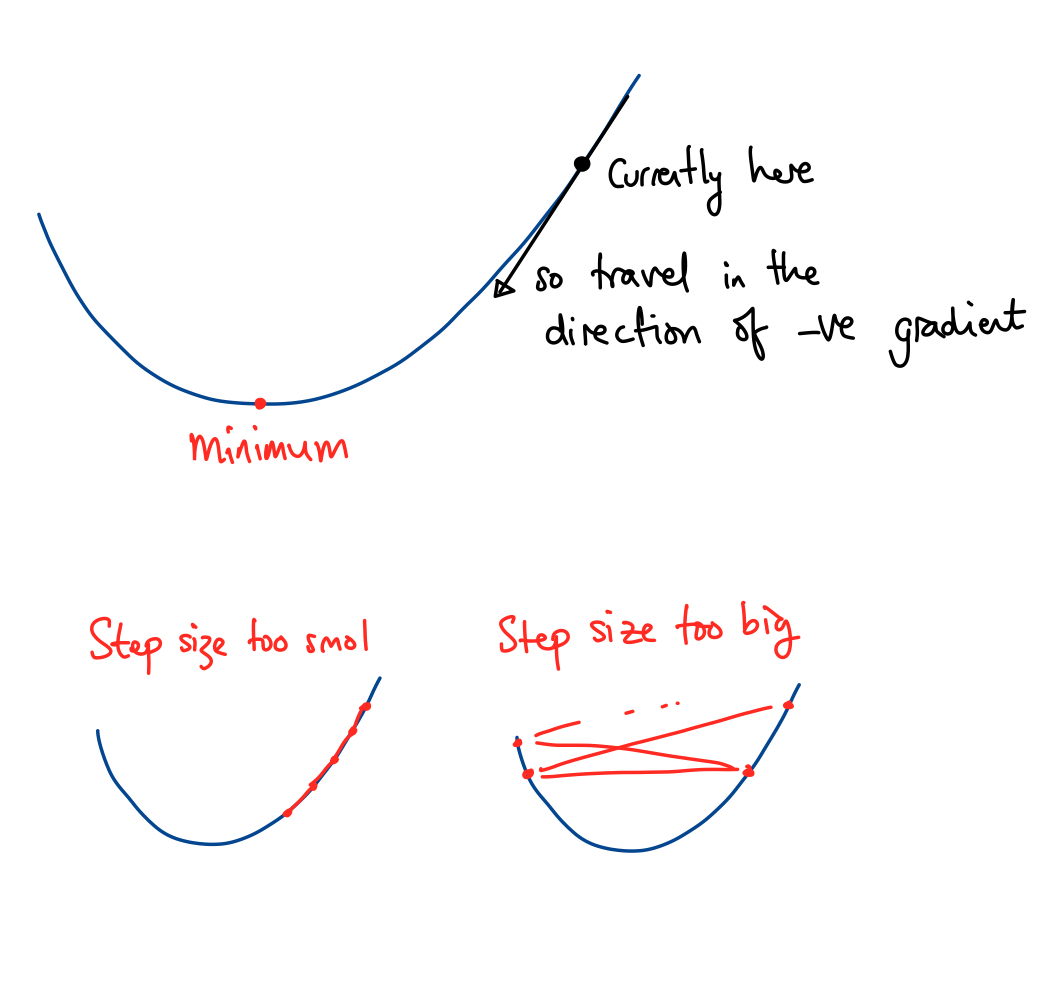 Currently here
so travel in the
direction of -ve gradient
Minimum
Step size too smol
Step size too big